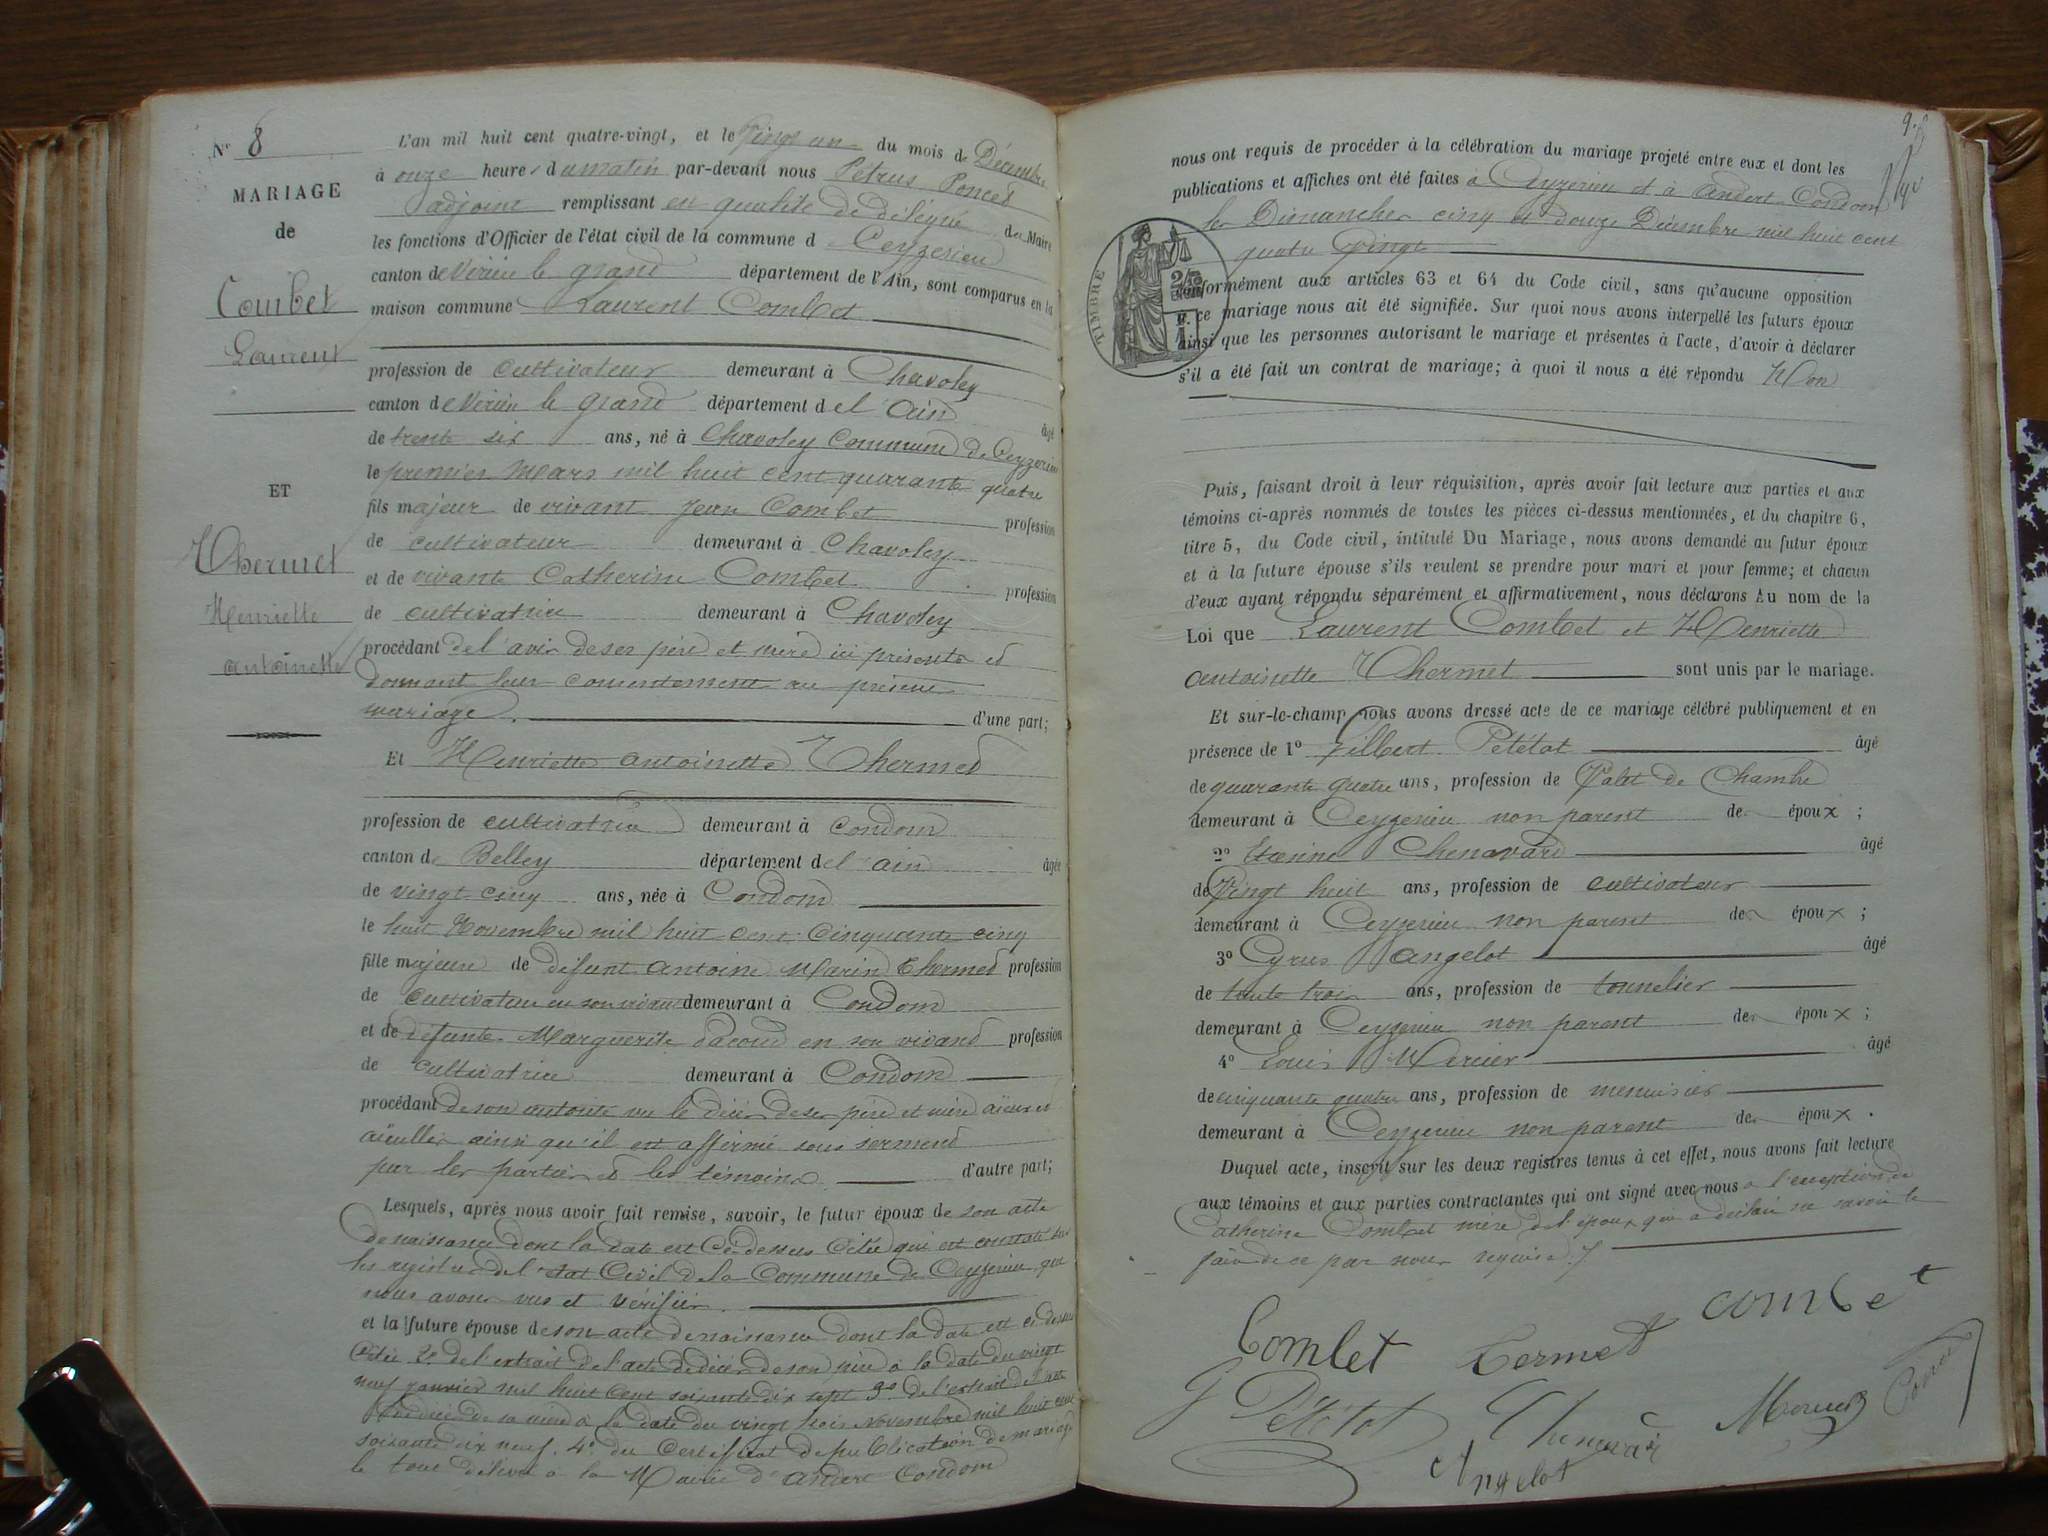 N° 8
MARIAGE
de
Combet
Laurent
ET
Thermet
Henriette
antoinette
L'an mil huit cent quatre-vingt, et le Vingt un du mois de Décembre
à onze heures du matin par-devant nous Pétrus Poncet
adjoint remplissant en qualité de délégué du Maire
les fonctions d'Officier de l'état civil de la commune d Ceyzerieu
canton de Virieu le grand département de l'Ain, sont comparus en la
maison commune Laurent Combet
profession de cultivateur demeurant à Chavoley
canton de Virieu le grand département de l'ain âgé
de trente six ans, né à Chavoley Commune de Ceyzerieu
le premier Mars mil huit cent quarante quatre
fils majeur de vivant Jean Combet profession
de cultivateur demeurant à Chavoley
et de vivante Catherine Combet profession
de cultivatrice demeurant à Chavoley
procédant de l'avis de ses père et mère ici présents et
donnant leur consentement au présent
mariage. d'une part;
Et Henriette antoinette Thermet
profession de cultivatrice demeurant à Condom
canton de Belley département de l'ain âgée
de vingt cinq ans, née à Condom
le huit Novembre mil huit cent cinquante cinq
fille majeure de défunt antoine Marin Thermet profession
de cultivateur en son vivant demeurant à Condom
et de défunte Marguerite en son vivant profession
de cultivatrice demeurant à Condom
procédant de son autorité vu le décès de ses père et mère aïeux et
aïeulles ainsi qu'il est affirmé sous serment
par les parties et les témoins d'autre part;
Lesquels, après nous avoir fait remise, savoir, le futur époux de son acte
de naissance dont la date est Ci-dessus Citée qui est constaté sur
les registres de l'état Civil de la Commune de Ceyzerieu que
nous avons vus et vérifiés.
et la future épouse de son acte de naissance dont la date est ci dessus
Citée 2° de l'extrait de l'acte de décès de son père à la date du vingt
neuf janvier mil huit Cent soixante dix sept 3° de l'extrait de l'acte
de décès de sa mère à la date du vingt trois Novembre mil huit cent
soixante dix neuf. 4° du Certificat de publication de mariage
le tout délivré à la Mairie d'andert Condom
9.
nous ont requis de procéder à la célébration du mariage projeté entre eux et dont les
publications et affiches ont été faites à Ceyzerieu et à andert-Condom
les Dimanches cinq et douze Décembre mil huit cent
quatre Vingt
TIMBRE
conformément aux articles 63 et 64 du Code civil, sans qu'aucune opposition
à ce mariage nous ait été signifiée. Sur quoi nous avons interpellé les futurs époux
ainsi que les personnes autorisant le mariage et présentes à l'acte, d'avoir à déclarer
s'il a été fait un contrat de mariage; à quoi il nous a été répondu Non
Puis, faisant droit à leur réquisition, après avoir fait lecture aux parties et aux
témoins ci-après nommés de toutes les pièces ci-dessus mentionnées, et du chapitre 6,
titre 5, du Code civil, intitulé Du Mariage, nous avons demandé au futur époux
et à la future épouse s'ils veulent se prendre pour mari et pour femme; et chacun
d'eux ayant répondu séparément et affirmativement, nous déclarons Au nom de la
Loi que Laurent Combet et Henriette
antoinette Thermet sont unis par le mariage.
Et sur-le-champ nous avons dressé acte de ce mariage célébré publiquement et en
présence de 1° Jilbert Pététot âgé
de quarante quatre ans, profession de Valet de Chambre
demeurant à Ceyzerieu non parent des époux ;
2° Chenavard âgé
de Vingt huit ans, profession de cultivateur
demeurant à Ceyzerieu non parent des époux ;
3° Cyrus angelot âgé
de trente trois ans, profession de tonnelier
demeurant à Ceyzerieu non parent des époux ;
4° Louis Mercier âgé
de cinquante quatre ans, profession de menuisier
demeurant à Ceyzerieu non parent des époux .
Duquel acte, inscrit sur les deux registres tenus à cet effet, nous avons fait lecture
aux témoins et aux parties contractantes qui ont signé avec nous à l'exception de
Catherine Combet mère de l'époux qui a déclaré ne savoir le
faire de ce par nous requise.
Combet Termet combet
G Pététot Chenavar Mercier Poncet
Angelot